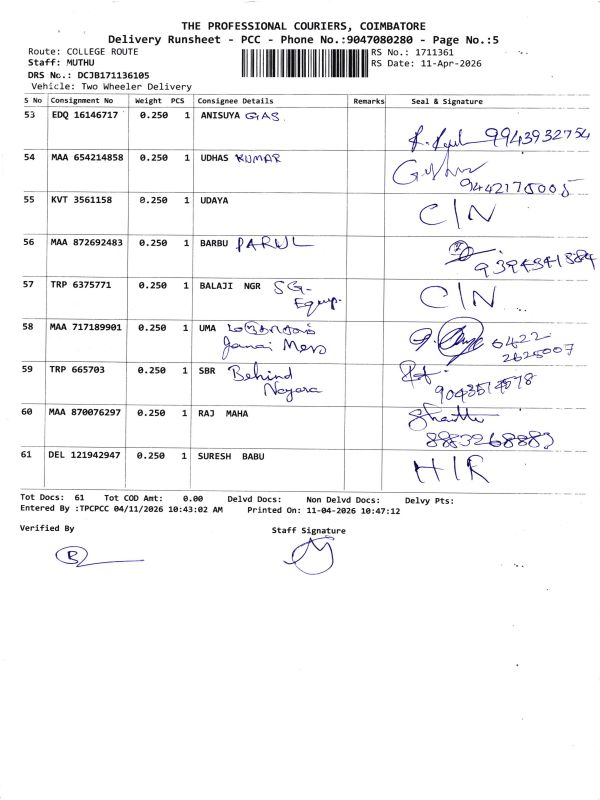 THE PROFESSIONAL COURIERS, COIMBATORE
Delivery Runsheet - PCC - Phone No.:9047080280 - Page No.:5
Route: COLLEGE ROUTE RS No.: 1711361
Staff: MUTHU RS Date: 11-Apr-2026
DRS No.: DCJB171136105
Vehicle: Two Wheeler Delivery
S No Consignment No Weight PCS Consignee Details Remarks Seal & Signature
53 EDQ 16146717 0.250 1 ANISUYA GAS
9943932754
54 MAA 654214858 0.250 1 UDHAS KUMAR
55 KVT 3561158 0.250 1 UDAYA C/N
56 MAA 872692483 0.250 1 BARBU PARUL
57 TRP 6375771 0.250 1 BALAJI NGR SG- C/N
Equip.
58 MAA 717189901 0.250 1 UMA
Mess 2625007
59 TRP 665703 0.250 1 SBR Behind
Nayara
60 MAA 870076297 0.250 1 RAJ MAHA
61 DEL 121942947 0.250 1 SURESH BABU
Tot Docs: 61 Tot COD Amt: 0.00 Delvd Docs: Non Delvd Docs: Delvy Pts:
Entered By :TPCPCC 04/11/2026 10:43:02 AM Printed On: 11-04-2026 10:47:12
Verified By Staff Signature